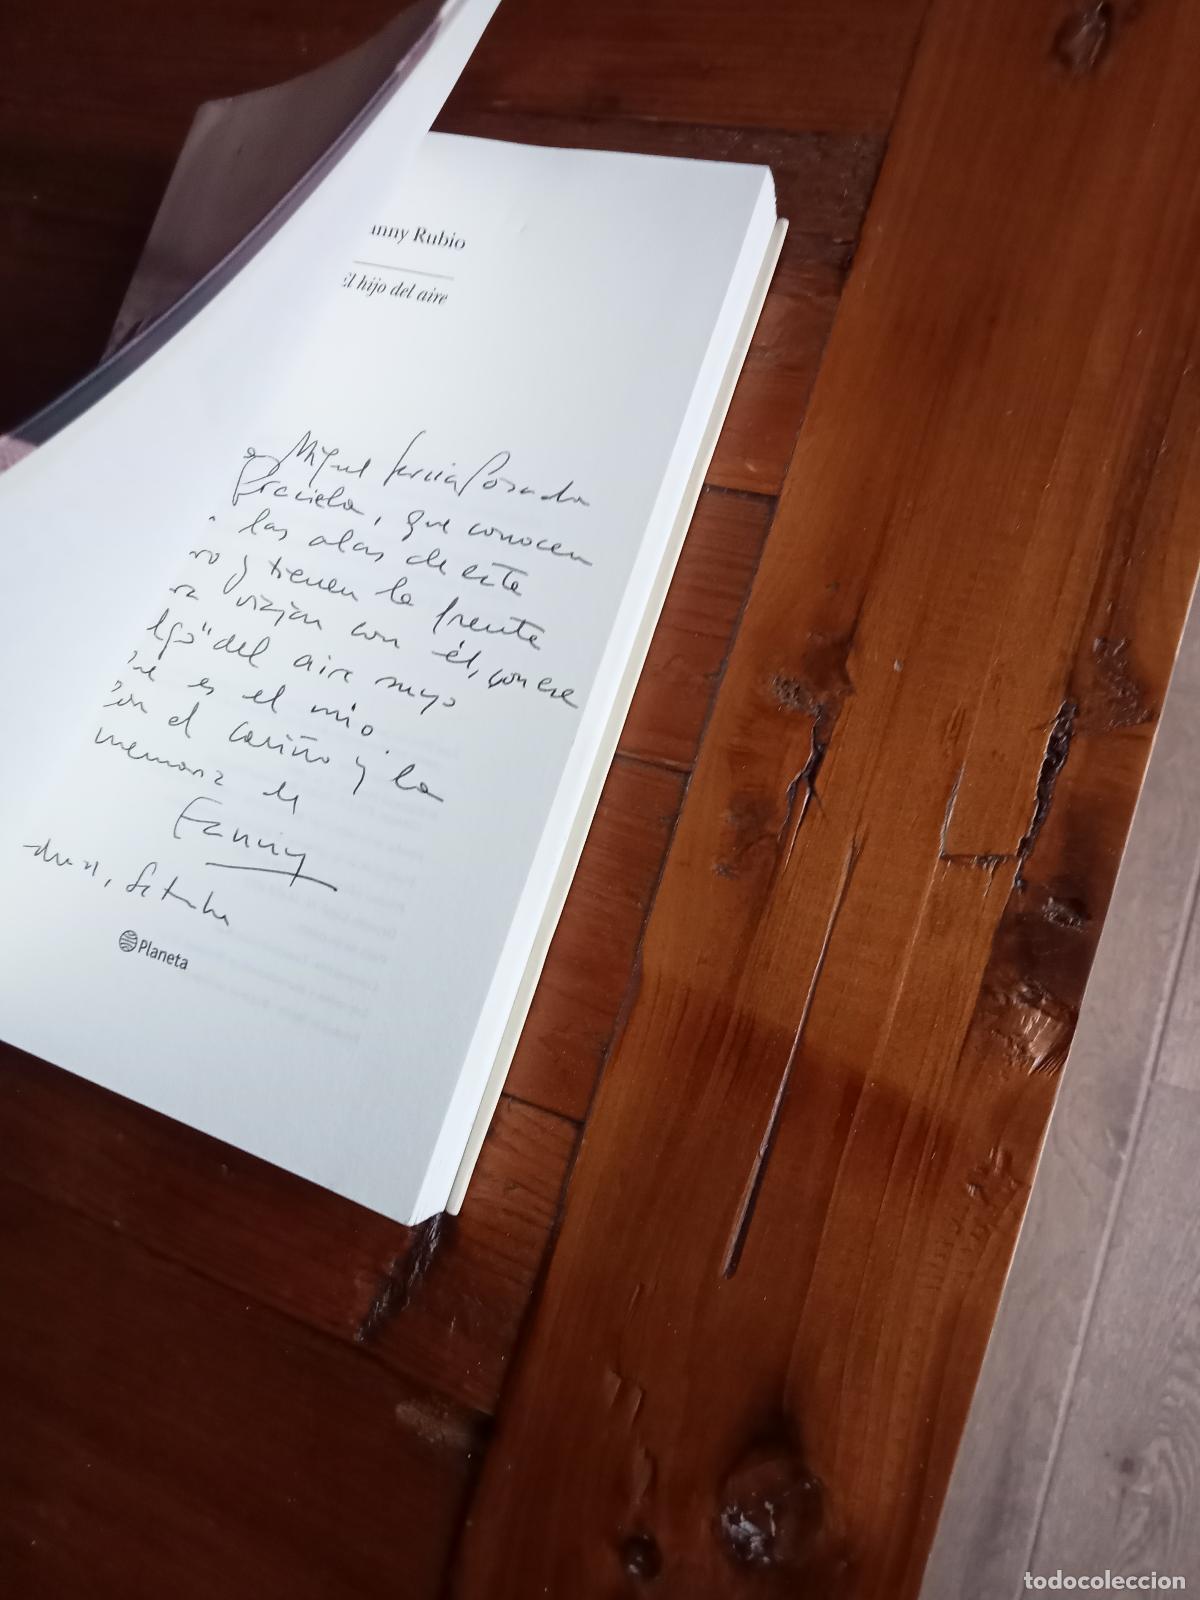 nny Rubio
El hijo del aire
a Miguel García Posada
Graciela, que conocen
las alas de este
ro y tienen la frente
ra viajan con él, con ese
lgo" del aire suyo
ue es el mío.
on el cariño y la
memoria de
Fanny
Planeta
todocoleccion